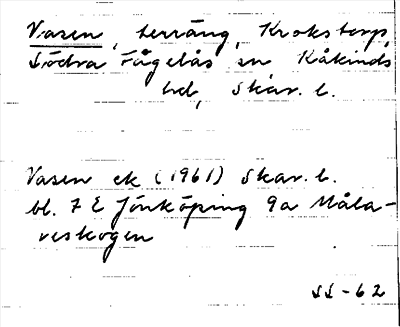 Vasen, terräng, Krokstorp,
Södra Fågelås sn, Kåkinds
hd, Skar. l.
Vasen ek (1961) Skar. l.
bl. 7 E Jönköping 9a Måla-
veskogen
SS-62